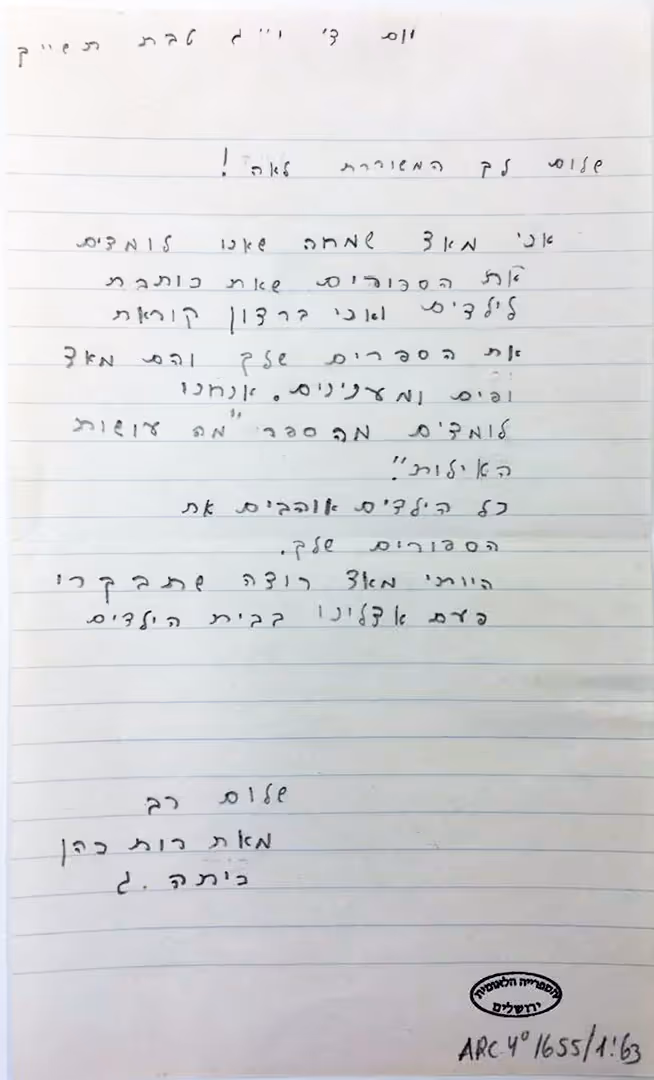 יום ד' י"ג טבת תש"ך
שלום לך המשוררת לאה!
אני מאד שמחה שאנו לומדים
את הספורים שאת כותבת
לילדים ואני ברצון קוראת
את הספרים שלך והם מאד
יפים ומענינים. אנחנו
לומדים מהספר "מה עושות
האילות".
כל הילדים אוהבים את
הספורים שלך.
הייתי מאד רוצה שתבקרי
פעם אצלינו בבית הילדים
שלום רב
מאת רות כהן
כיתה .ג
הספרייה הלאומית
ירושלים
ARC. 4° 1655/1:63